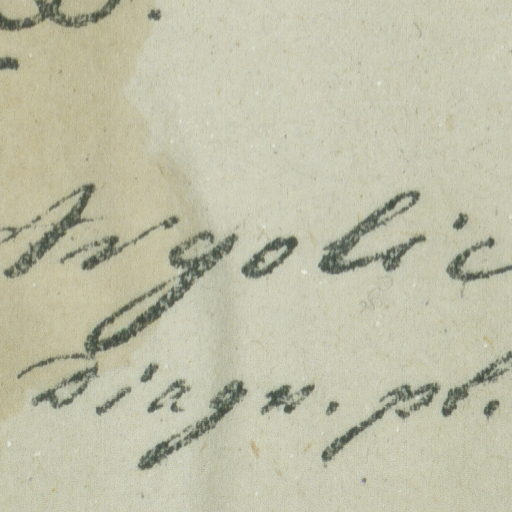 Angolic
Diagn. pl.